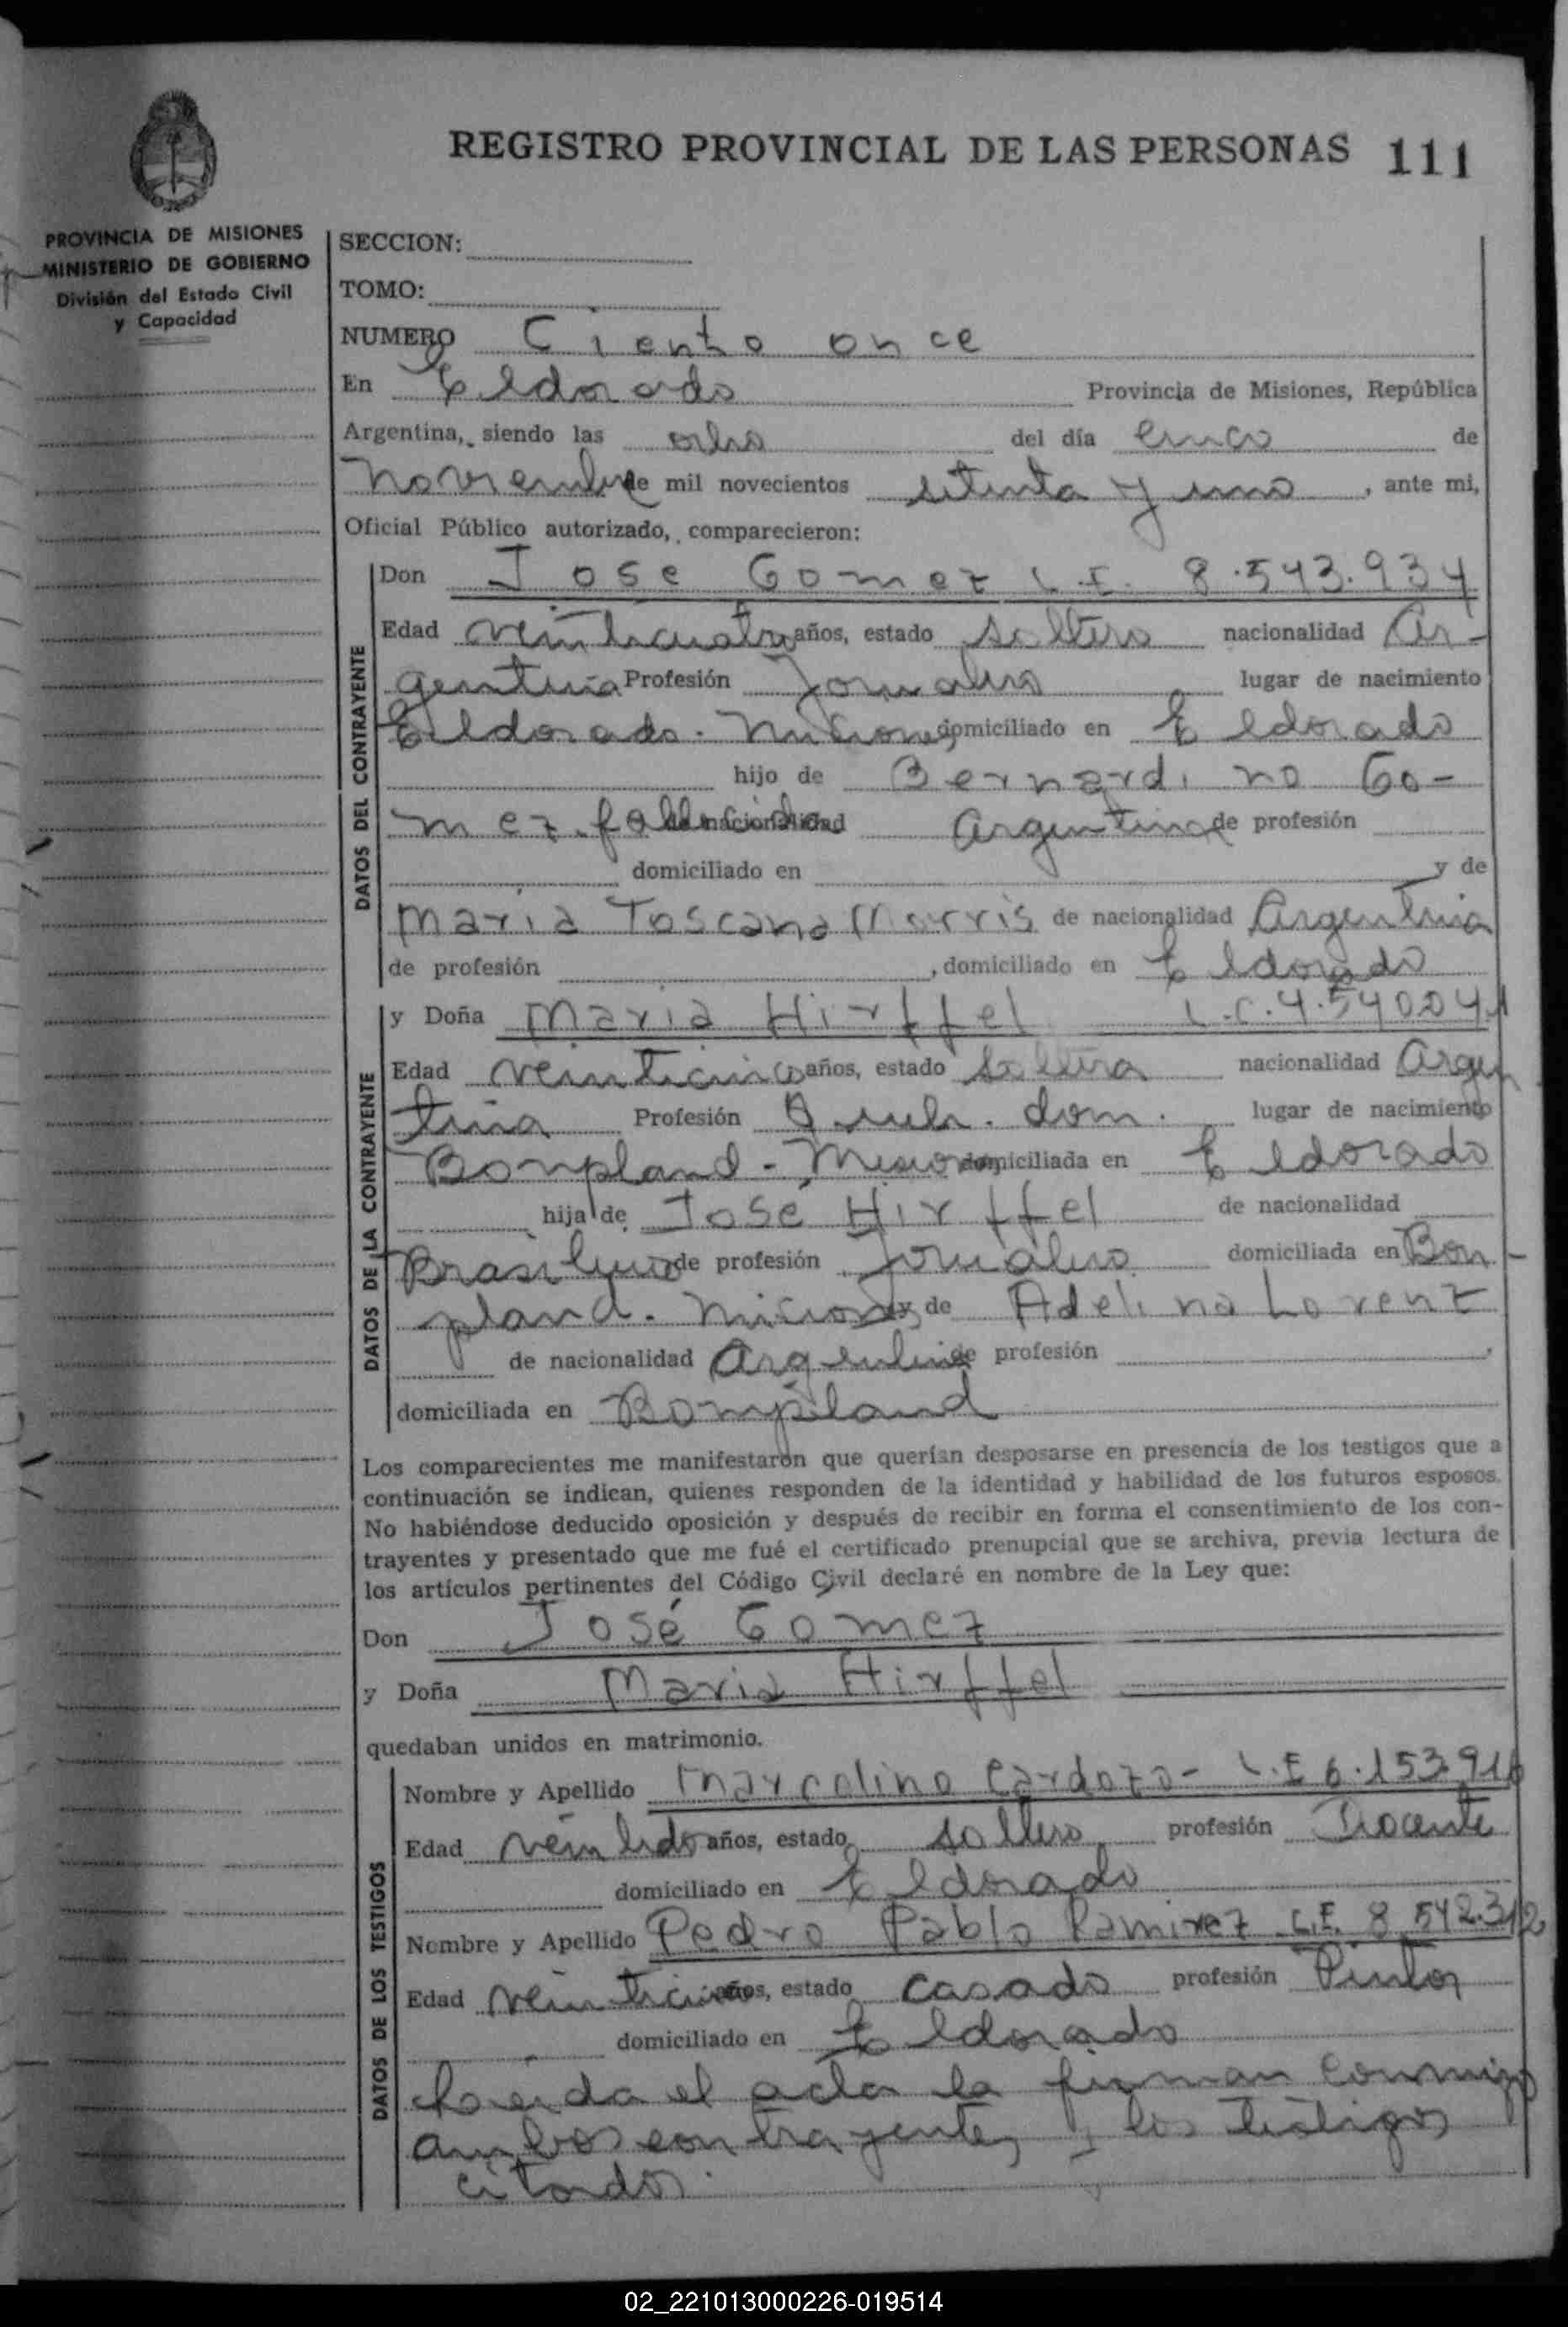 REGISTRO PROVINCIAL DE LAS PERSONAS 111
PROVINCIA DE MISIONES
MINISTERIO DE GOBIERNO
División del Estado Civil
y Capacidad
SECCION:
TOMO:
NUMERO Ciento once
En Eldorado Provincia de Misiones, República
Argentina, siendo las ocho del día cinco de
noviembre de mil novecientos setenta y uno, ante mi,
Oficial Público autorizado, comparecieron:
DATOS DEL CONTRAYENTE
Don Jose Gomez L.E. 8.543.934
Edad veinticuatro años, estado soltero nacionalidad Ar-
gentina Profesión Jornalero lugar de nacimiento
Eldorado - Misiones domiciliado en Eldorado
hijo de Bernardino Go-
mez. fallecido de nacionalidad Argentina de profesión
domiciliado en y de
Maria Toscana Morris de nacionalidad Argentina
de profesión , domiciliado en Eldorado
DATOS DE LA CONTRAYENTE
y Doña Maria Hirffel L.C. 4.540.041
Edad veinticinco años, estado soltera nacionalidad Argen
tina Profesión Queh. dom. lugar de nacimiento
Bonpland - Misiones domiciliada en Eldorado
hija de José Hirffel de nacionalidad
Brasilero de profesión Jornalero domiciliada en Bon-
pland. Misiones y de Adelina Lorenz
de nacionalidad Argentina de profesión ,
domiciliada en Bompland
Los comparecientes me manifestaron que querían desposarse en presencia de los testigos que a
continuación se indican, quienes responden de la identidad y habilidad de los futuros esposos.
No habiéndose deducido oposición y después de recibir en forma el consentimiento de los con-
trayentes y presentado que me fué el certificado prenupcial que se archiva, previa lectura de
los artículos pertinentes del Código Civil declaré en nombre de la Ley que:
Don José Gomez
y Doña Maria Hirffel
quedaban unidos en matrimonio.
DATOS DE LOS TESTIGOS
Nombre y Apellido Marcolino Cardozo - L.E 6.153.916
Edad veintidos años, estado soltero profesión Docente
domiciliado en Eldorado
Nombre y Apellido Pedro Pablo Ramirez L.E. 8.542.312
Edad años, estado casado profesión Pintor
domiciliado en Eldorado
Leida el acta la firman conmigo
ambos contrayentes y los testigos
citados.
02_221013000226-019514